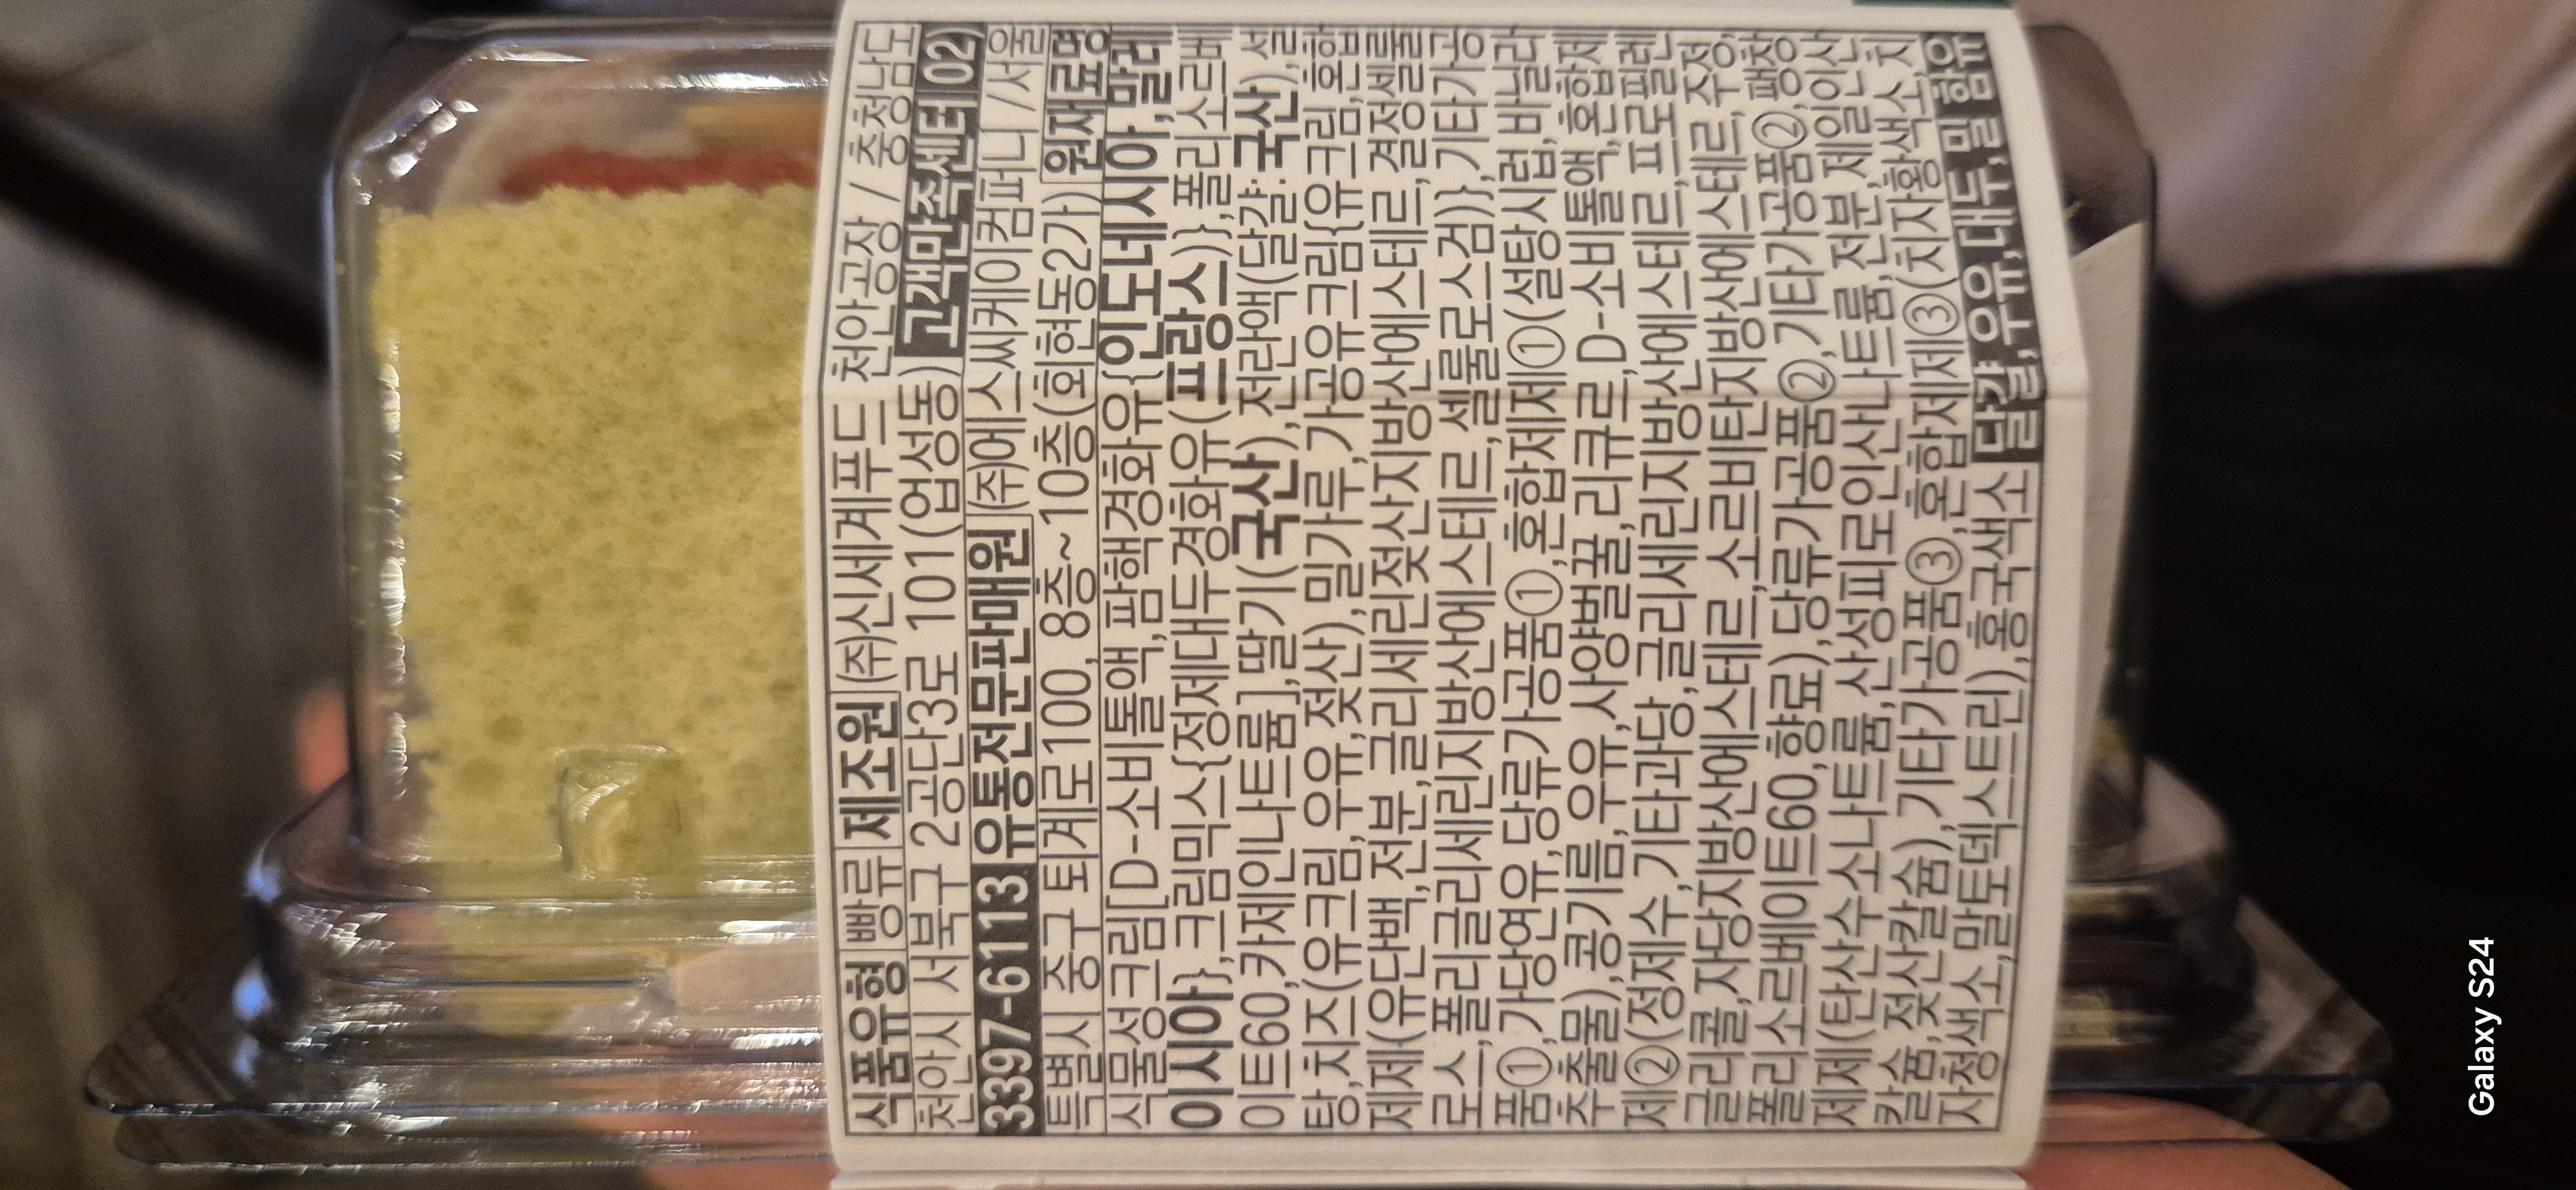 식품유형 빵류 제조원 (주)신세계푸드 천안공장 / 충청남도
천안시 서북구 2공단3로 101(업성동) 고객만족센터 02)
3397-6113 유통전문판매원 (주)에스씨케이컴퍼니 / 서울
특별시 중구 퇴계로100, 8층~10층(회현동2가) 원재료명
식물성크림[D-소비톨액,팜핵경화유{인도네시아,말레
이시아},크림믹스{정제대두경화유(프랑스)},폴리소르베
이트60,카제인나트륨],딸기(국산),전란액(달걀:국산),설
탕,치즈(유크림,우유,젖산),밀가루,가공유크림{유크림,혼합
제제(유단백,전분,글리세린젖산지방산에스테르,결정셀룰
로스,폴리글리세린지방산에스테르,셀룰로스검)},기타가공
품①,가당연유,당류가공품①,혼합제제①(설탕시럽,바닐라
추출물),콩기름,우유,사양벌꿀,리큐르,D-소비톨액,혼합제
제②(정제수,기타과당,글리세린지방산에스테르,프로필렌
글리콜,자당지방산에스테르,소르비탄지방산에스테르,주정,
폴리소르베이트60,향료),당류가공품②,기타가공품②,팽창
제제(탄산수소나트륨,산성피로인산나트륨,전분,제일인산
칼슘,젖산칼슘),기타가공품③,혼합제제③(치자황색소,치
자청색소,말토덱스트린),홍국색소 달걀,우유,대두,밀 함유
Galaxy S24